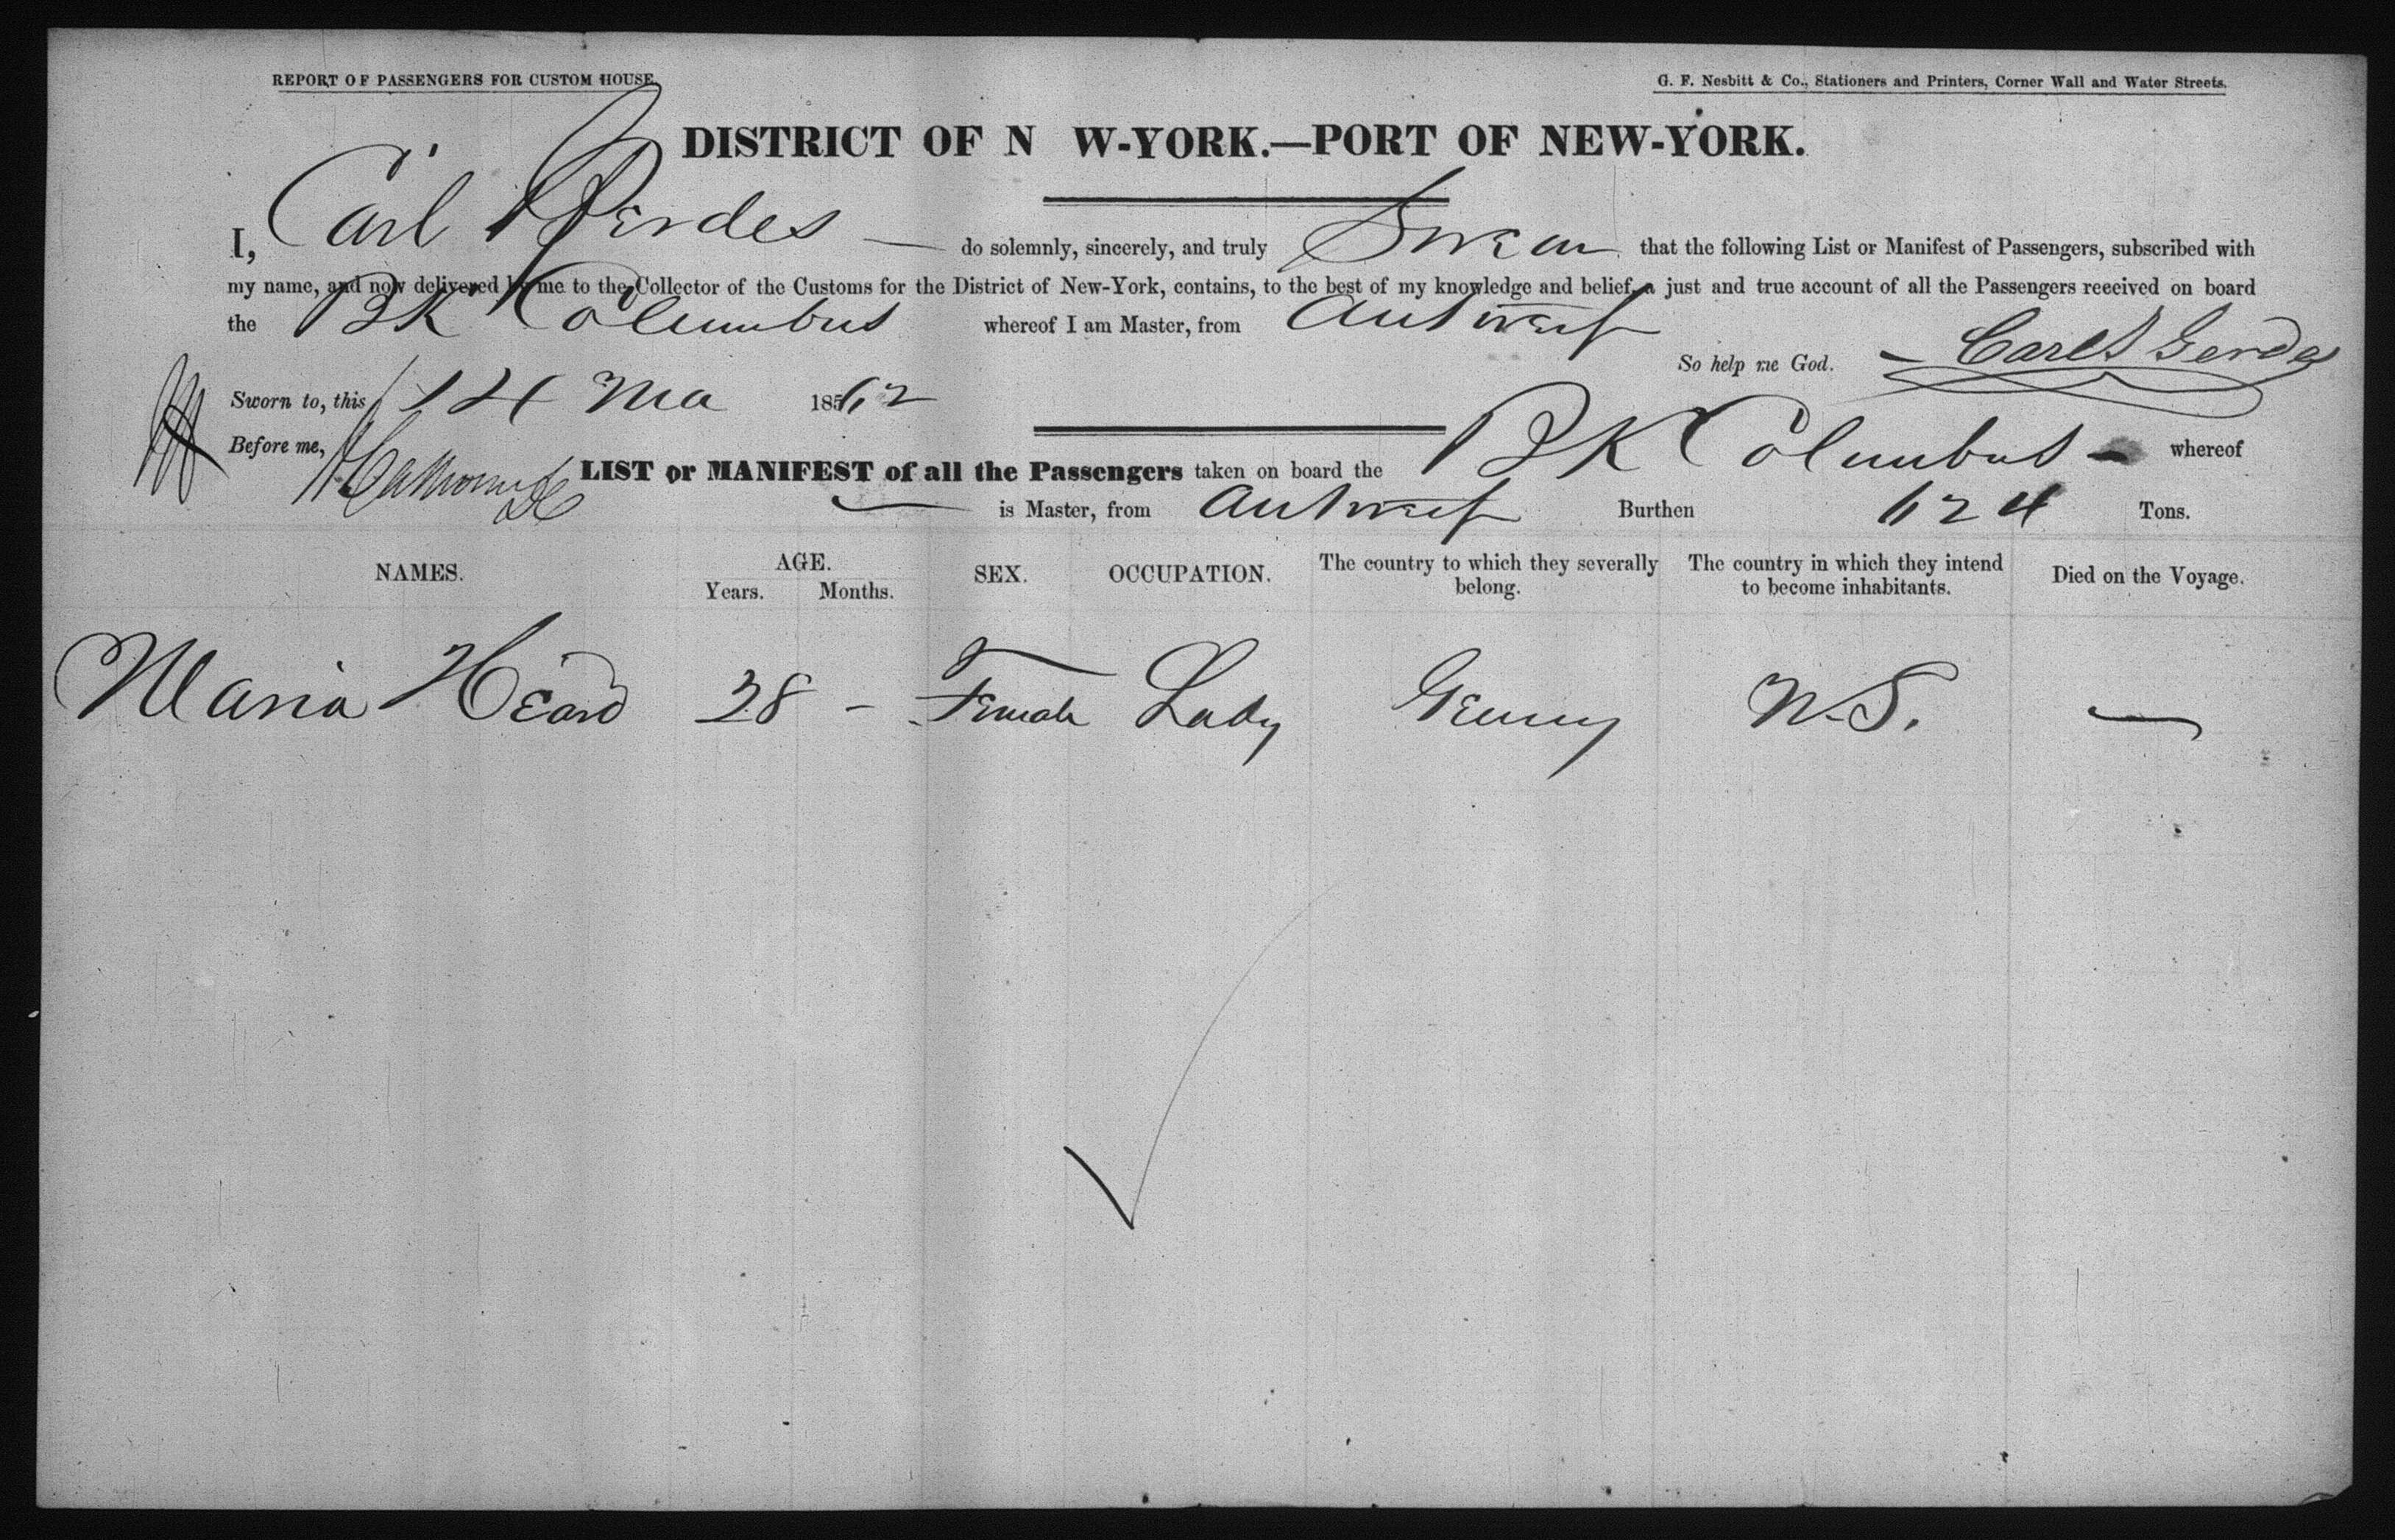 REPORT OF PASSENGERS FOR CUSTOM HOUSE.
G. F. Nesbitt & Co., Stationers and Printers, Corner Wall and Water Streets.
DISTRICT OF N W-YORK.—PORT OF NEW-YORK.
I, Carl Gerdes — do solemnly, sincerely, and truly Swear that the following List or Manifest of Passengers, subscribed with
my name, and now delivered by me to the Collector of the Customs for the District of New-York, contains, to the best of my knowledge and belief, a just and true account of all the Passengers received on board
the BK Columbus whereof I am Master, from Antwerp
So help me God. — Carl Gerdes
Sworn to, this 14 Ma 1862
Before me,
LIST or MANIFEST of all the Passengers taken on board the BK Columbus — whereof
— is Master, from Antwerp Burthen 624 Tons.
NAMES. AGE. Years. Months. SEX. OCCUPATION. The country to which they severally belong. The country in which they intend to become inhabitants. Died on the Voyage.
Maria Heard 28 — Female Lady Gemny U.S. —